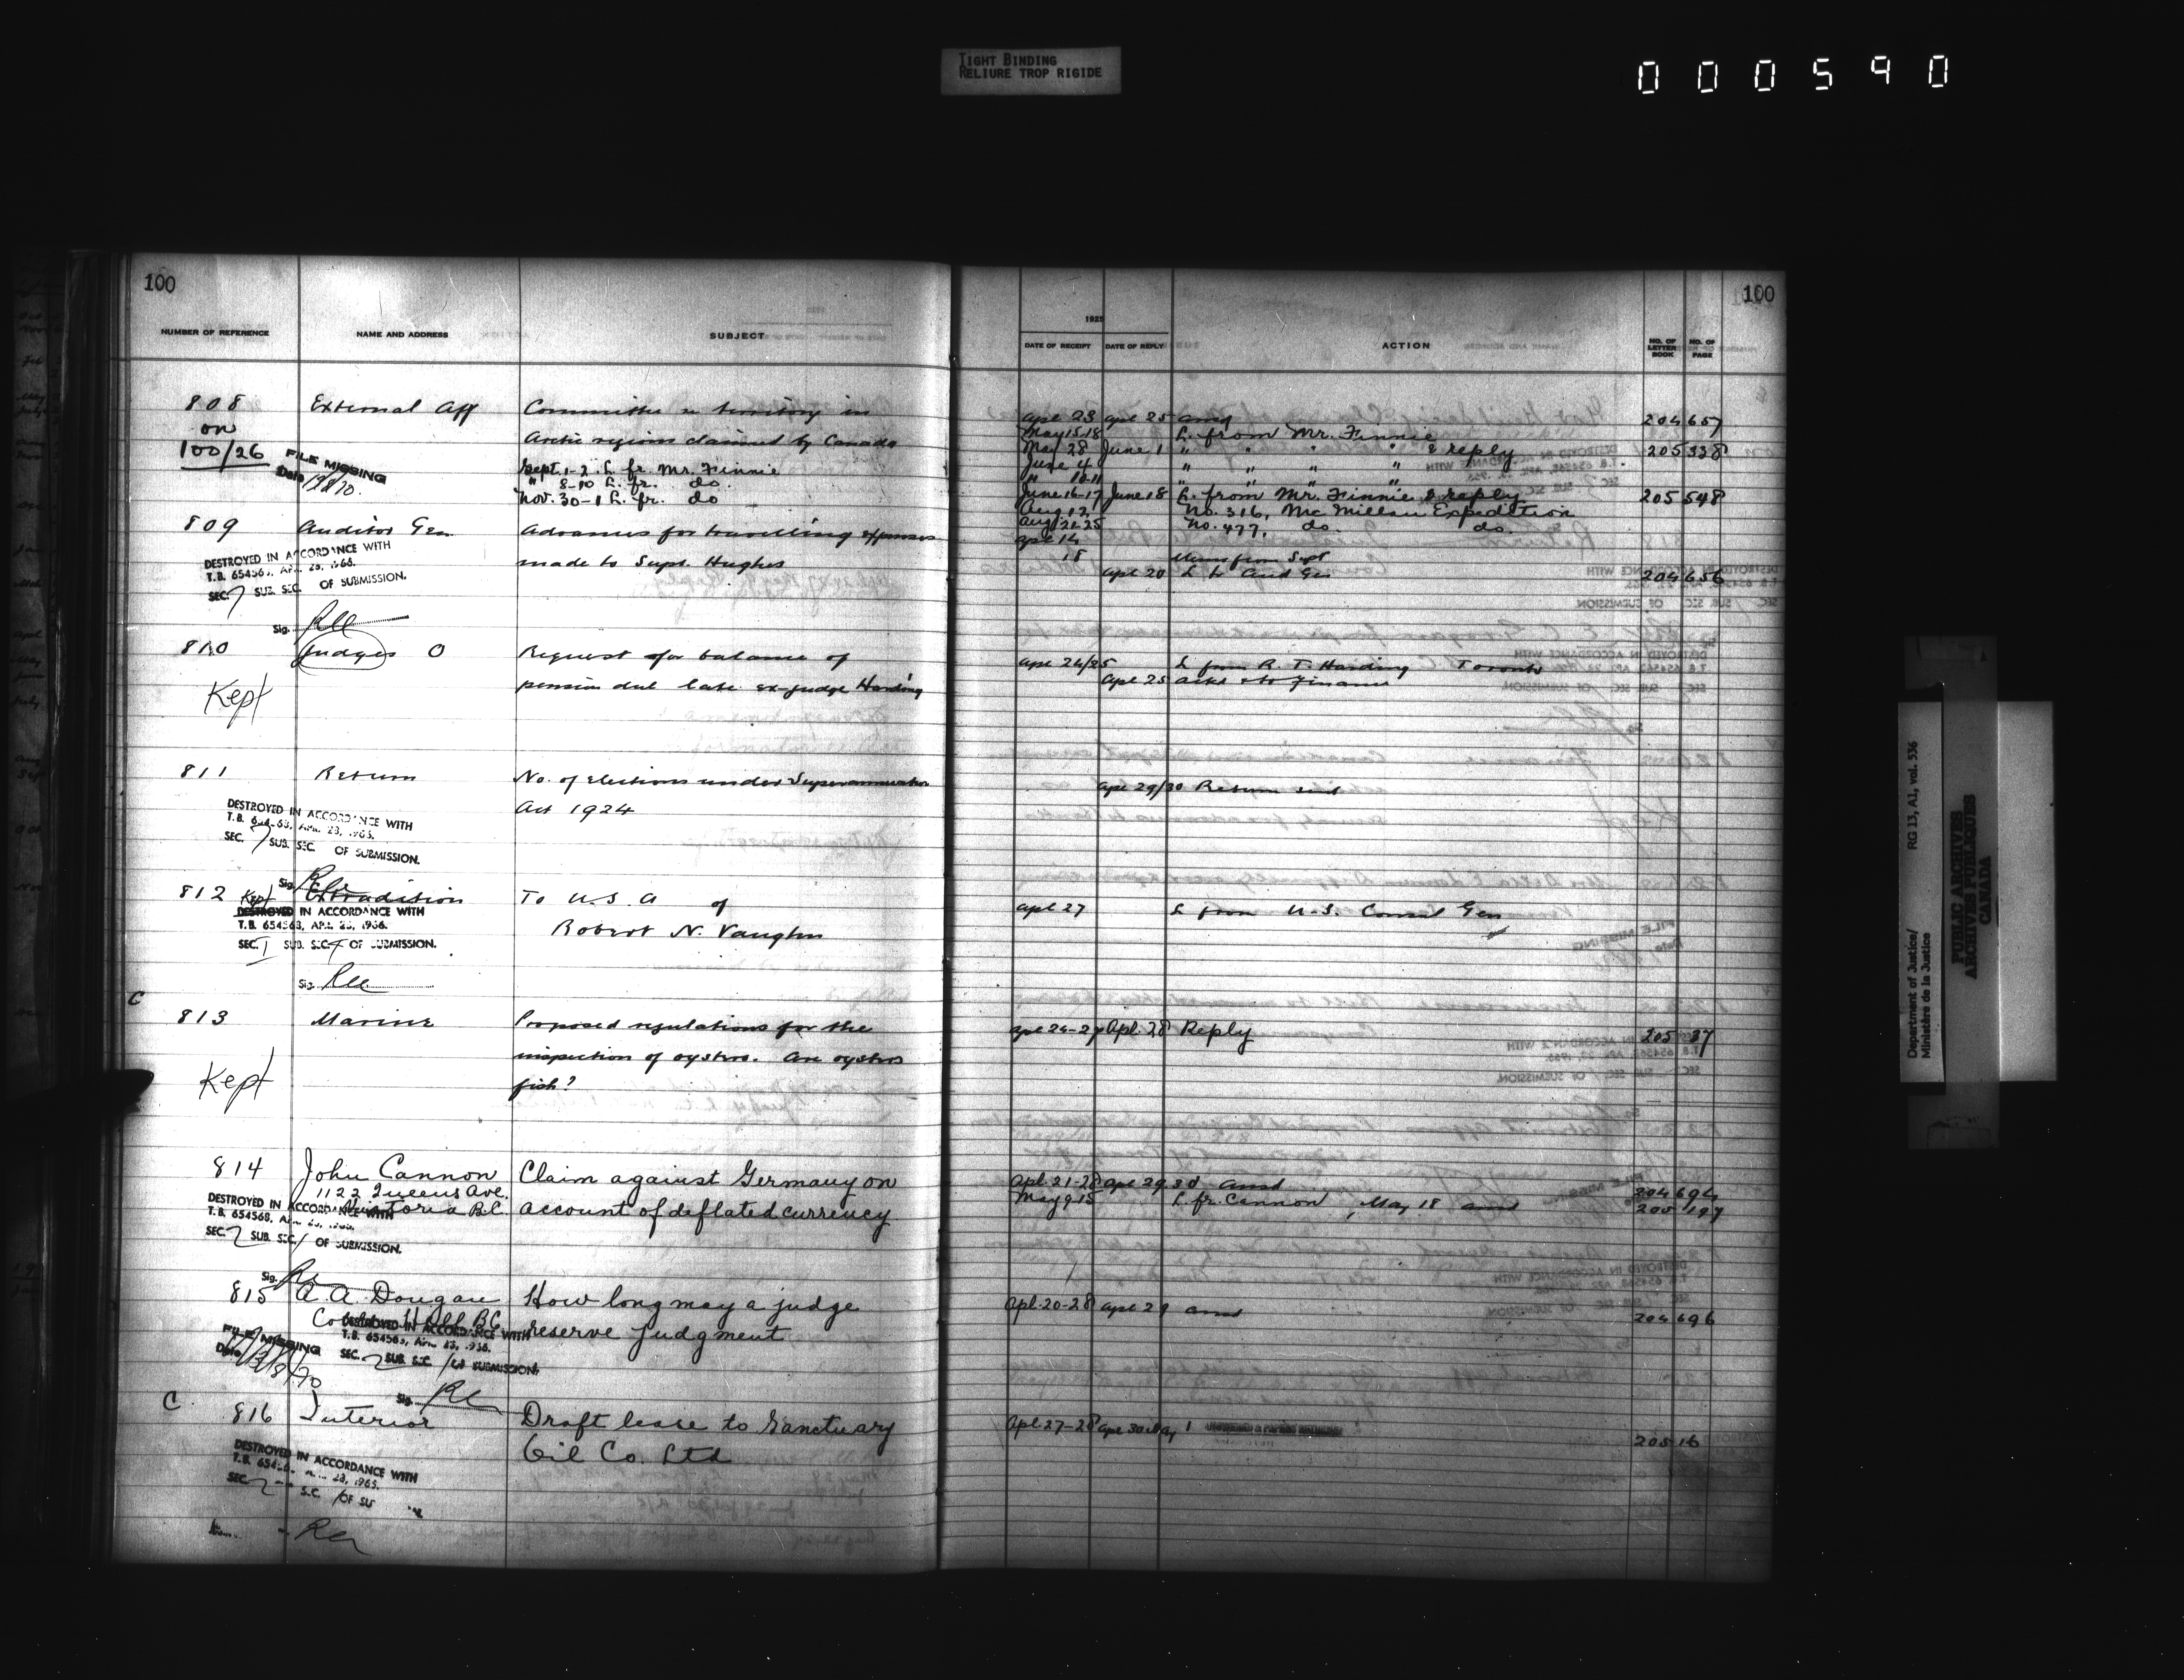 TIGHT BINDING
RELIURE TROP RIGIDE
000590
100
NUMBER OF REFERENCE NAME AND ADDRESS SUBJECT
808 External Aff Committee re territory in
on Arctic regions claimed by Canada
100/26
FILE MISSING
Date
Sept. 1-2 L. fr. Mr. Finnie
" 8-10 L. fr. do.
Nov. 30-1 L. fr. do
809 Auditor Gen Advances for travelling expenses
made to Supt. Hughes
DESTROYED IN ACCORDANCE WITH
T.B. 654568, APR. 28, 1966.
SEC. 7 SUB. SEC. OF SUBMISSION.
Sig.
810 Judges O Request for balance of
pension due late ex-judge Harding
Kept
811 Return No. of elections under Superannuation
Act 1924
DESTROYED IN ACCORDANCE WITH
T.B. APR. 28, 1966.
SEC. 7 SUB. SEC. OF SUBMISSION.
Sig.
812 Kept Extradition To U.S.A of
Robert N. Vaughn
DESTROYED IN ACCORDANCE WITH
T.B. 654568, APR. 28, 1966.
SEC. 1 SUB. SEC. 4 OF SUBMISSION.
Sig.
C
813 Marine Proposed regulations for the
inspection of oysters. Are oysters
fish?
Kept
814 John Cannon Claim against Germany on
1122 Queens Ave.
Victoria B.C. account of deflated currency
DESTROYED IN ACCORDANCE WITH
T.B. 654568,
SEC. 2 SUB. SEC. 1 OF SUBMISSION.
Sig.
815 A. A. Dougan How long may a judge
B.C. reserve judgment
DESTROYED IN ACCORDANCE WITH
T.B. 654568, APR. 28, 1966.
SEC. 2 SUB. SEC. 1 OF SUBMISSION.
FILE MISSING
Date
Sig.
C
816 Interior Draft lease to Sanctuary
Oil Co. Ltd
DESTROYED IN ACCORDANCE WITH
SEC. 2
100
1925
DATE OF RECEIPT DATE OF REPLY ACTION NO. OF LETTER BOOK NO. OF PAGE
Apl 23 Apl 25 ansd 204 657
May 15-18 L. from Mr. Finnie
May 28 June 1 " " " " & reply 205 338
June 4 " " " "
" 10-11 " " " "
June 16-17 June 18 L. from Mr. Finnie & reply 205 548
Aug 12 No. 316, Mc Millan Expedition
Aug 21-25 No. 477, do. do.
Apl 14
18 Memo from Supt
Apl 20 L to Aud Gen 204 656
Apl 24/25 L from R. T. Harding Toronto
Apl 25 ackd & to Finance
Apl 29/30 Return sent
Apl 27 L from U.S. Consul Gen
Apl 24-27 Apl. 28 Reply 205 37
Apl. 21-28 Apl 29.30 ansd 204 694
May 9-15 L. fr. Cannon, May 18 ansd 205 197
Apl. 20-28 Apl 29 ansd 204 696
Apl. 27-28 Apl 30 May 1 205 16
Department of Justice/ RG 13, A1, vol. 536
Ministère de la Justice
PUBLIC ARCHIVES
ARCHIVES PUBLIQUES
CANADA